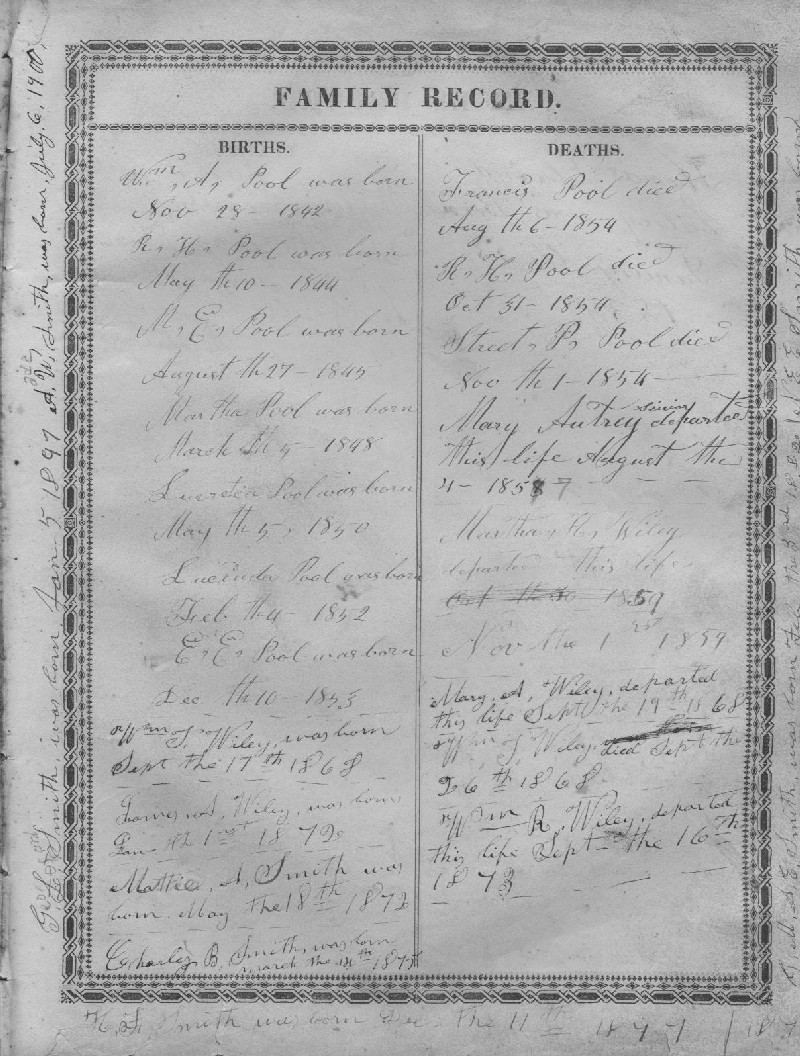 FAMILY RECORD.
BIRTHS.
Wm. A. Pool was born
Nov 28 - 1842
R. H. Pool was born
May th 10 - 1844
M. E. Pool was born
August th 27 - 1845
Martha Pool was born
March th 5 - 1848
Pool was born
May th 5, 1850
Lucinda Pool was born
Feb th 4 - 1852
E. E. Pool was born
Dec th 10 - 1853
Wm J, Wiley, was born
Sept the 17th 1868
James A, Wiley, was born
Jan the 1st 1872
Mattie, A, Smith was
born May the 18th 1872
Charley B, Smith, was born
march the 1874
DEATHS.
Francis Pool died
Aug th 6 - 1854
R. H. Pool died
Oct 31 - 1854
Street, P, Pool died
Nov th 1 - 1854
Mary Autrey Senior departed
this life August the
4 - 1857
Martha, R, Wiley
departed this life
Oct the 30 1859
Nov the 1st 1859
Mary, A, Wiley, departed
this life Sept the 19th 1868
Wm J, Wiley, died Sept the
26th 1868
Wm R, Wiley, departed
this life Sept the 16th
1873
Smith was born Dec the 11th 1877
Smith, was born Jan 5 1897
A. W. Smith, was born July, 6, 1900
E Smith, was born the 3rd 18
E Smith was born